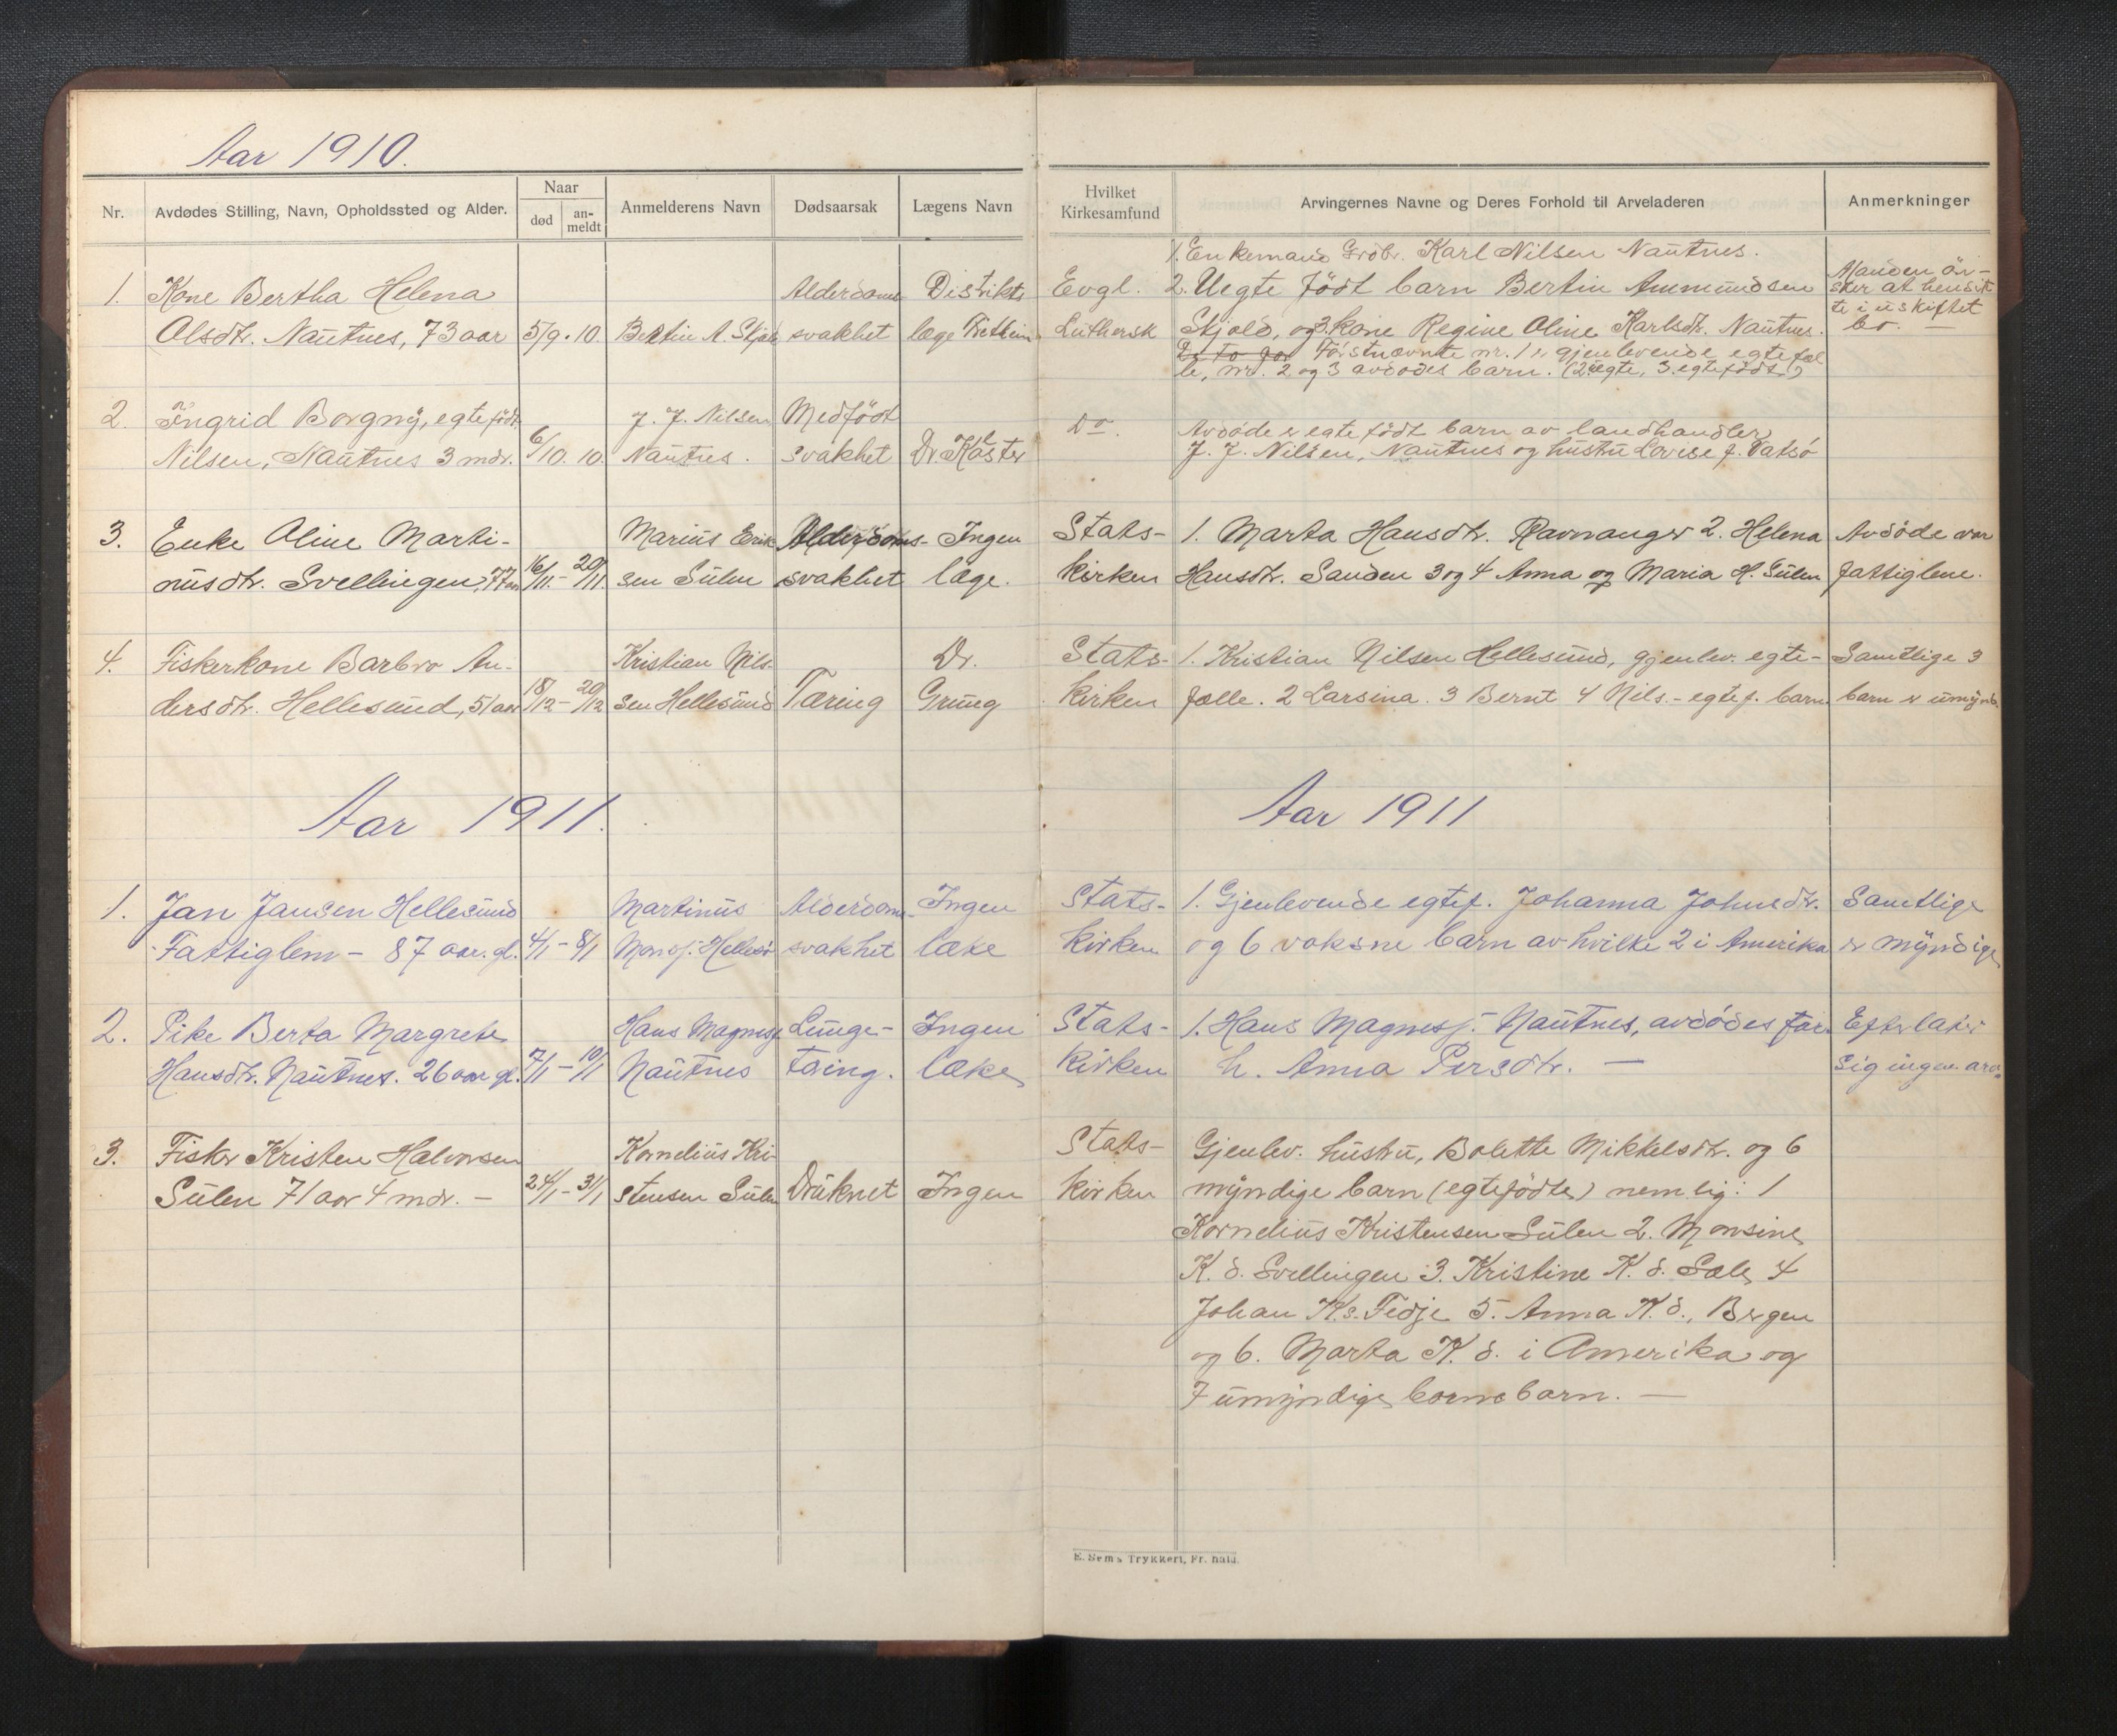 Aar 1910.
Nr.
Avdødes Stilling, Navn, Opholdssted og Alder.
Naar
død
an-
meldt
Anmelderens Navn
Dødsaarsak
Lægens Navn
Hvilket
Kirkesamfund
Arvingernes Navne og Deres Forhold til Arveladeren
Anmerkninger
1. Kone Bertha Helena
Olsdtr. Nautnes, 73 aar
5/9. 10.
Bertin A. Skjold
Alderdoms
svakhet
Distrikts
læge
Evgl.
Luthersk
1. Enkemand Grdbr. Karl Nilsen Nautnes.
2. Uegte født barn Bertin Ammundsen
Skjold, og 3. kone Regine Oline Karlsdtr. Nautnes.
De to før Førstnævnte nr. 1 er gjenlevende egtefæl
le, nr. 2 og 3 avdødes barn. (2 uegte, 3. egtefødt)
Manden øn-
sker at hensit
te i uskiftet
bo. —
2. Ingrid Borgny, egtefødt
Nilsen, Nautnes 3 mdr.
6/10. 10.
J. J. Nilsen
Nautnes.
Medfødt
svakhet
Dr
Do.
Avdøde er egtefødt barn av landhandler
J. J. Nilsen, Nautnes og hustru Lovise f. Vatsø
3. Enke Oline Marti-
nusdtr. Svellingen, 77 aar
16/11. – 20/11.
Marius Erik
sen Sulen
Alderdoms-
svakhet
Ingen
læge.
Stats-
kirken
1. Marta Hansdtr. Ravnanger 2. Helena
Hansdtr. Sanden 3 og 4 Anna og Maria H. Sulen
Avdøde var
fattiglem.
4. Fiskerkone Barbro An-
dersdtr. Hellesund, 51 aar
18/12 – 20/12
Kristian Nils-
sen Hellesund
Tæring
Dr.
Grung
Stats-
kirken
1. Kristian Nilsen Hellesund, gjenlev. egte-
fælle. 2 Larsina. 3 Bernt 4 Nils. – egtef. barn.
Samtlige 3
barn er umynd.
Aar 1911.
Aar 1911
1. Jan Jansen Hellesund
Fattiglem – 87 aar. gl.
4/1 – 8/1
Martinus
Monsj. Hellesø
Alderdoms-
svakhet
Ingen
læke
Stats-
kirken
1. Gjenlevende egtef. Johanna Johnsdtr.
og 6 voksne barn av hvilke 2 i Amerika
Samtlige
er myndige
2. Pike Berta Margrete
Hansdtr. Nautnes. 26 aar gl.
7/1 – 10/1
Hans Magnesj.
Nautnes
Lunge-
tæing.
Ingen
læke
Stats-
kirken
1. Hans Magnesj. – Nautnes, avdødes far.
h. Anna Persdtr. —
Efterlater
sig ingen arv.
3. Fisker Kristen Halvorsen
Sulen 71 aar 4 mdr. –
24/1 – 31/1
Kornelius Kri-
stensen Sulen
Druknet
Ingen
Stats-
kirken
Gjenlev. hustru, Bolette Mikkelsdtr. og 6
myndige barn (egtefødte) nemlig: 1
Kornelius Kristensen Sulen 2. Monsine
K. d. Svellingen 3. Kristine K. d. Sæle 4
Johan K. s. Fedje 5. Anna K. d., Bergen
og 6. Marta K. d. i Amerika og
7 umyndige barnebarn. —
E. Sem's Trykkeri, Fr. hald.